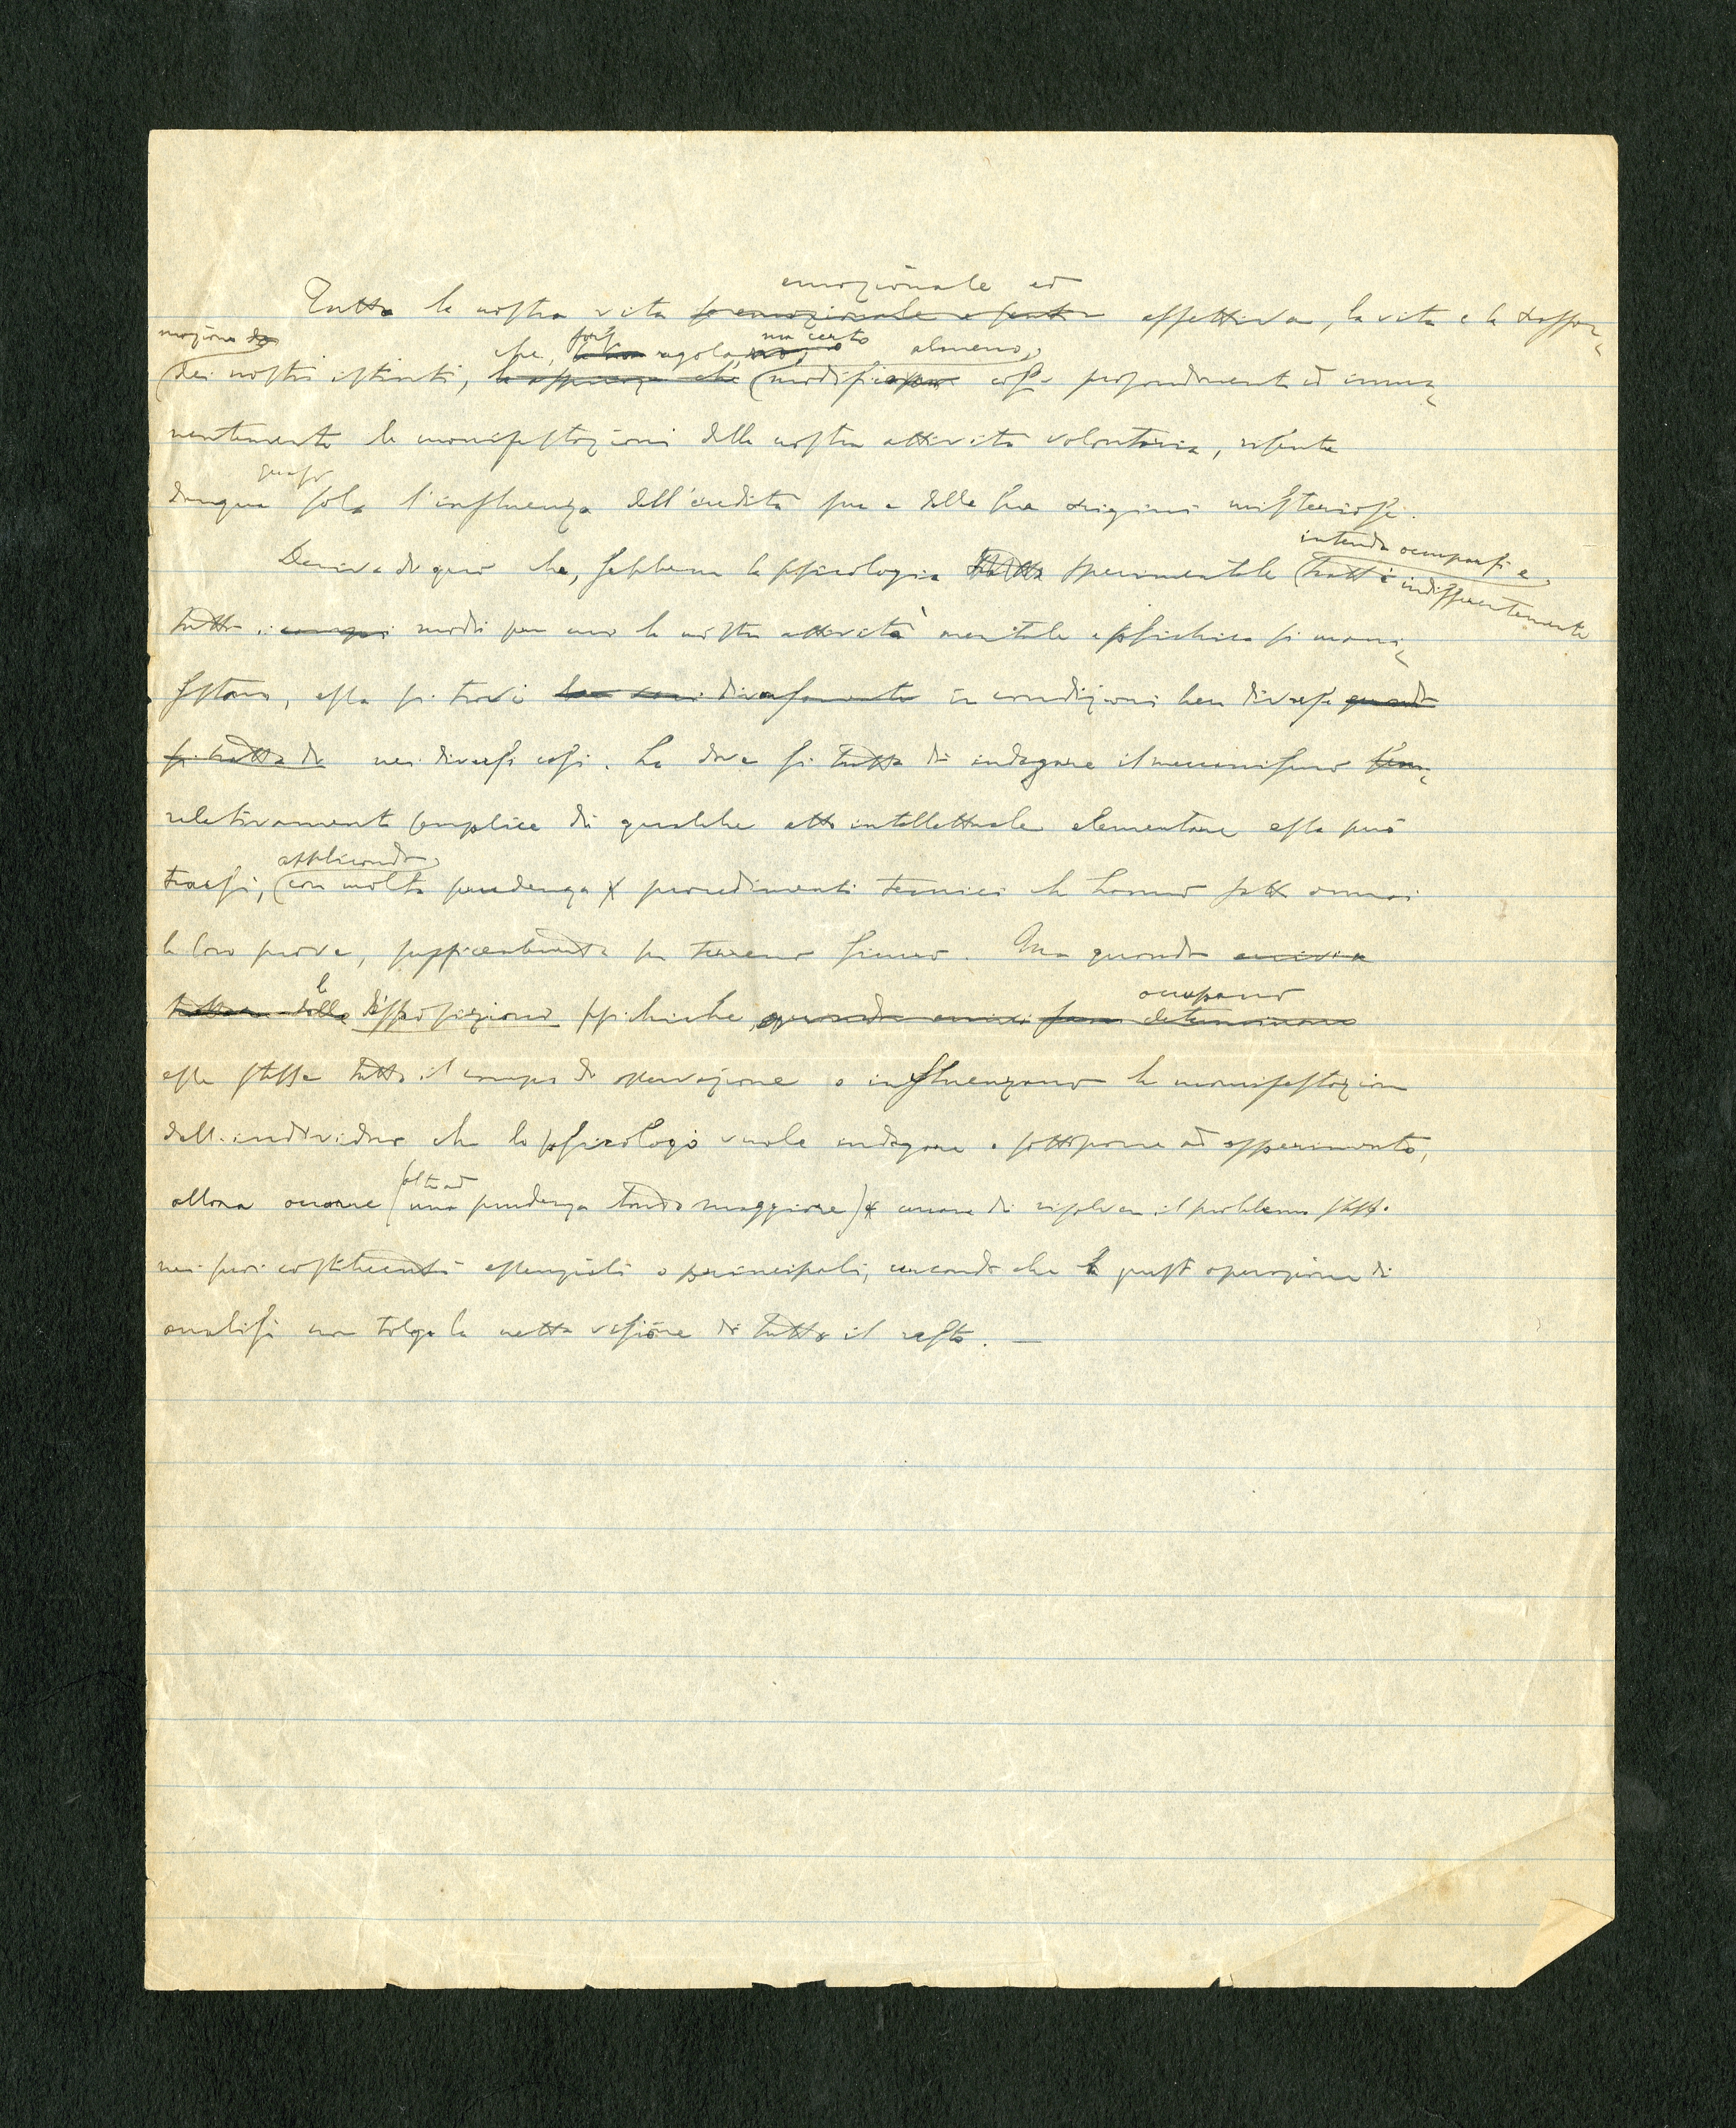 emozionale ed
Tutta la nostra vita affettiva, la vita e la trasfor-
mazione
che, forse regola, ma certo almeno,
dei nostri istinti, modifica così profondamente ed imma-
nentemente le manifestazioni della nostra attività volontaria, risente
quasi
dunque sola l'influenza dell'eredità sua e delle sue origini misteriose.
intenda occuparsi e
Deriva da ciò che, sebbene la psicologia sperimentale tratti indifferentemente
tutti i modi per cui la nostra attività mentale e psichica si mani-
festano, essa si trovi in condizioni ben diverse
si tratta di nei diversi casi. Là dove si tratta di indagare il meccanismo
relativamente semplice di qualche atto intellettuale elementare essa può
applicando,
trarsi, con molta prudenza procedimenti tecnici che hanno fatto ormai
le loro prove, sufficientemente su terreno sicuro. Ma quando
occupano
disposizioni psichiche
esse stesse tutto il campo di osservazione o influenzano le manifestazioni
dell'individuo che lo psicologo vuole indagare e sottoporre ad esperimento,
oltre ad
allora occorre (una prudenza tanto maggiore) cercare di risolvere il problema stesso
nei suoi costituenti essenziali o principali, cercando che questa operazione di
analisi non tolga la netta visione di tutto il resto. —